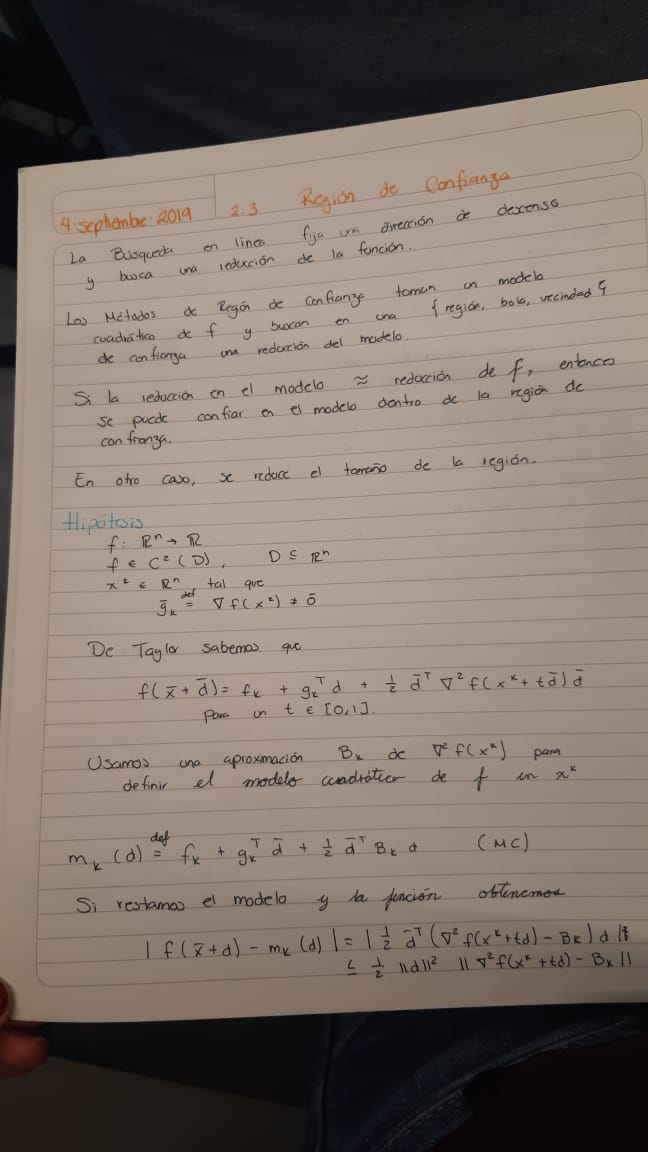 4·septiembre·2019 2.3 Región de Confianza
La Búsqueda en línea fija una dirección de descenso
y busca una reducción de la función.
Los Métodos de Región de Confianza toman un modelo
cuadrático de f y buscan en una { región, bola, vecindad }
de confianza una reducción del modelo.
Si la reducción en el modelo ≈ reducción de f, entonces
se puede confiar en el modelo dentro de la región de
confianza.
En otro caso, se reduce el tamaño de la región.
Hipótesis
f: ℝⁿ → ℝ
f ∈ C² (D), D ⊆ ℝⁿ
xᵏ ∈ ℝⁿ tal que
ḡₖ def= ∇f(xᵏ) ≠ ō
De Taylor sabemos que
f(x̄ + d̄) = fₖ + gₖᵀ d + ½ d̄ᵀ ∇²f(xᵏ + td̄) d̄
para un t ∈ [0,1].
Usamos una aproximación Bₖ de ∇²f(xᵏ) para
definir el modelo cuadrático de f en xᵏ
mₖ (d) def= fₖ + gₖᵀ d̄ + ½ d̄ᵀ Bₖ d (MC)
Si restamos el modelo y la función obtenemos
| f(x̄+d) - mₖ (d) | = | ½ d̄ᵀ (∇²f(xᵏ+td) - Bₖ) d |
≤ ½ ||d||² || ∇²f(xᵏ+td) - Bₖ ||